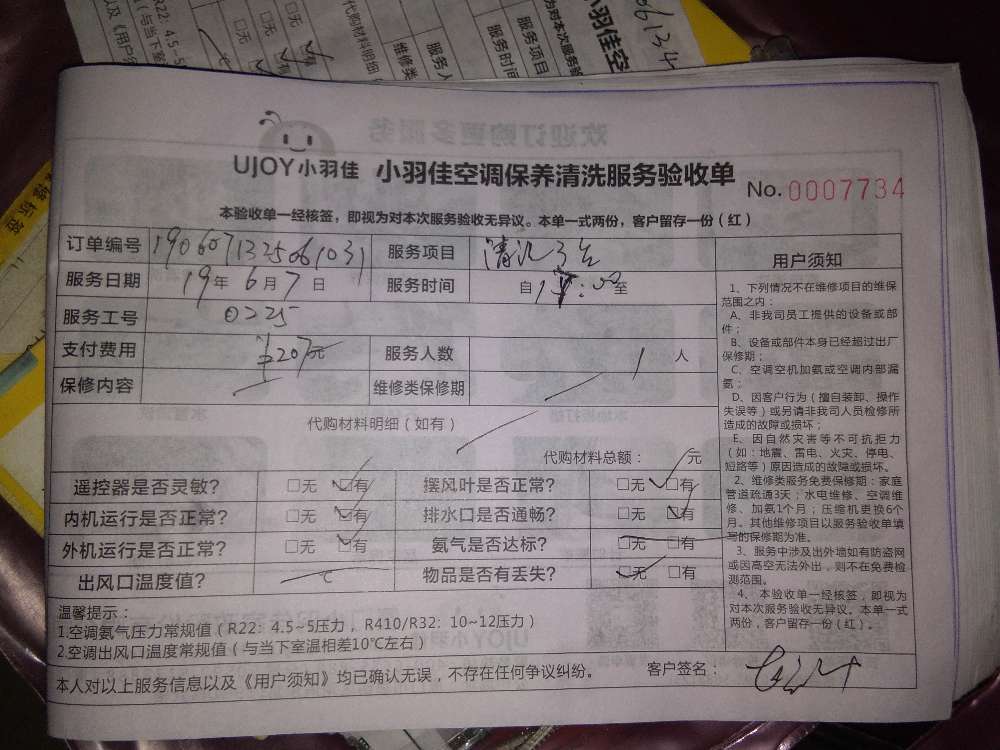 小羽佳空
为对本次服务验
服务项目
服务时间
服务人
维修类
代购材料明细（
□无
□无
R22：4.5~5
（与当下室
以及《用户须
061344
UJOY小羽佳 小羽佳空调保养清洗服务验收单 No.0007734
本验收单一经核签，即视为对本次服务验收无异议。本单一式两份，客户留存一份（红）
订单编号 1906071325061031 服务项目 清洗3台
服务日期 19年6月7日 服务时间 自 :00至
服务工号 0225
支付费用 ¥207元 服务人数 1人
保修内容 维修类保修期
代购材料明细（如有）
代购材料总额： 元
遥控器是否灵敏？ □无 □有 摆风叶是否正常？ □无 □有
内机运行是否正常？ □无 □有 排水口是否通畅？ □无 □有
外机运行是否正常？ □无 □有 氨气是否达标？ □无 □有
出风口温度值？ C 物品是否有丢失？ □无 □有
温馨提示：
1.空调氨气压力常规值（R22：4.5~5压力，R410/R32：10~12压力）
2.空调出风口温度常规值（与当下室温相差10℃左右）
本人对以上服务信息以及《用户须知》均已确认无误，不存在任何争议纠纷。 客户签名：
用户须知
1、下列情况不在维修项目的维保
范围之内：
A、非我司员工提供的设备或部
件；
B、设备或部件本身已经超过出厂
保修期；
C、空调空机加氨或空调内部漏
氨；
D、因客户行为（擅自装卸、操作
失误等）或另请非我司人员检修所
造成的故障或损坏；
E、因自然灾害等不可抗拒力
（如：地震、雷电、火灾、停电、
短路等）原因造成的故障或损坏。
2、维修类服务免费保修期：家庭
管道疏通3天；水电维修、空调维
修、加氨1个月；压缩机更换6个
月。其他维修项目以服务验收单填
写的保修期为准。
3、服务中涉及出外墙如有防盗网
或因高空无法外出，则不在免费检
测范围。
4、本验收单一经核签，即视为
对本次服务验收无异议。本单一式
两份，客户留存一份（红）。